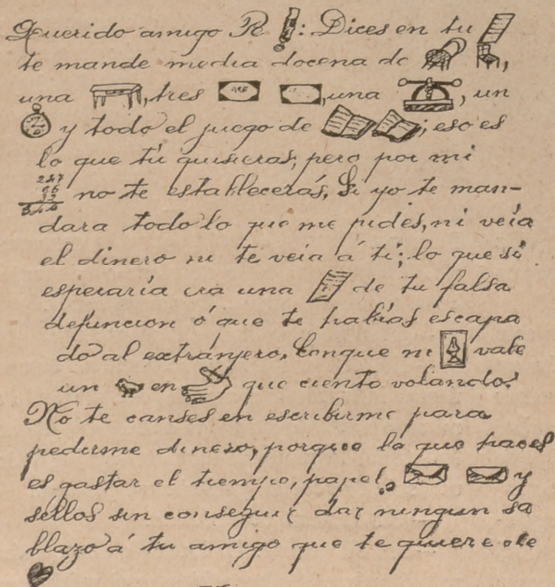 Querido amigo R : Dices en tu
te mande media docena de
una , tres , una , un
y todo el juego de ; eso es
lo que tú quisieras, pero por mi
247
96
no te establecerás. Si yo te man-
dara todo lo que me pides, ni veía
el dinero ni te veía á ti; lo que si
esperaría era una de tu falsa
defuncion ó que te habías escapa
do al extránjero. Conque m vale
un en que ciento volando.
No te canses en escribirme para
pedirme dinero, porque lo que haces
es gastar el tiempo, papel, y
sellos sin conseguir dar ningun sa
blazo á tu amigo que te quiere de